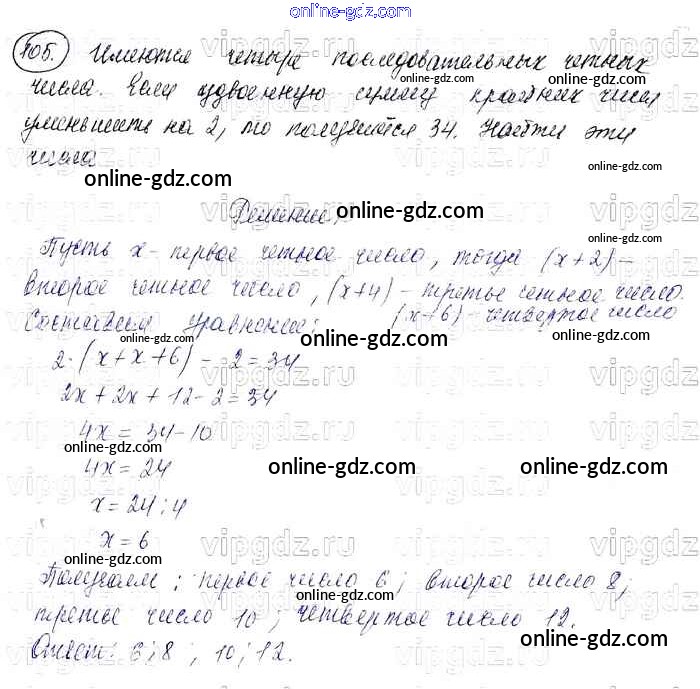 online-gdz.com
105. Имеются четыре последовательных четных
числа. Если удвоенную сумму крайних чисел
уменьшить на 2, то получится 34. Найти эти
числа
online-gdz.com
online-gdz.com
Решение:
online-gdz.com
vipgdz.ru
Пусть x - первое четное число, тогда (x+2) -
второе четное число, (x+4) - третье четное число.
Составим уравнение: (x+6) - четвертое число
online-gdz.com
online-gdz.com
2·(x+x+6) - 2=34
online-gdz.com
2x+2x+12-2=34
4x=34-10
online-gdz.com
4x=24
online-gdz.com
online-gdz.com
x=24:4
x=6
online-gdz.com
vipgdz.ru
Получаем: первое число 6; второе число 8;
online-gdz.com
третье число 10; четвертое число 12.
Ответ: 6; 8; 10; 12.
online-gdz.com
online-gdz.com